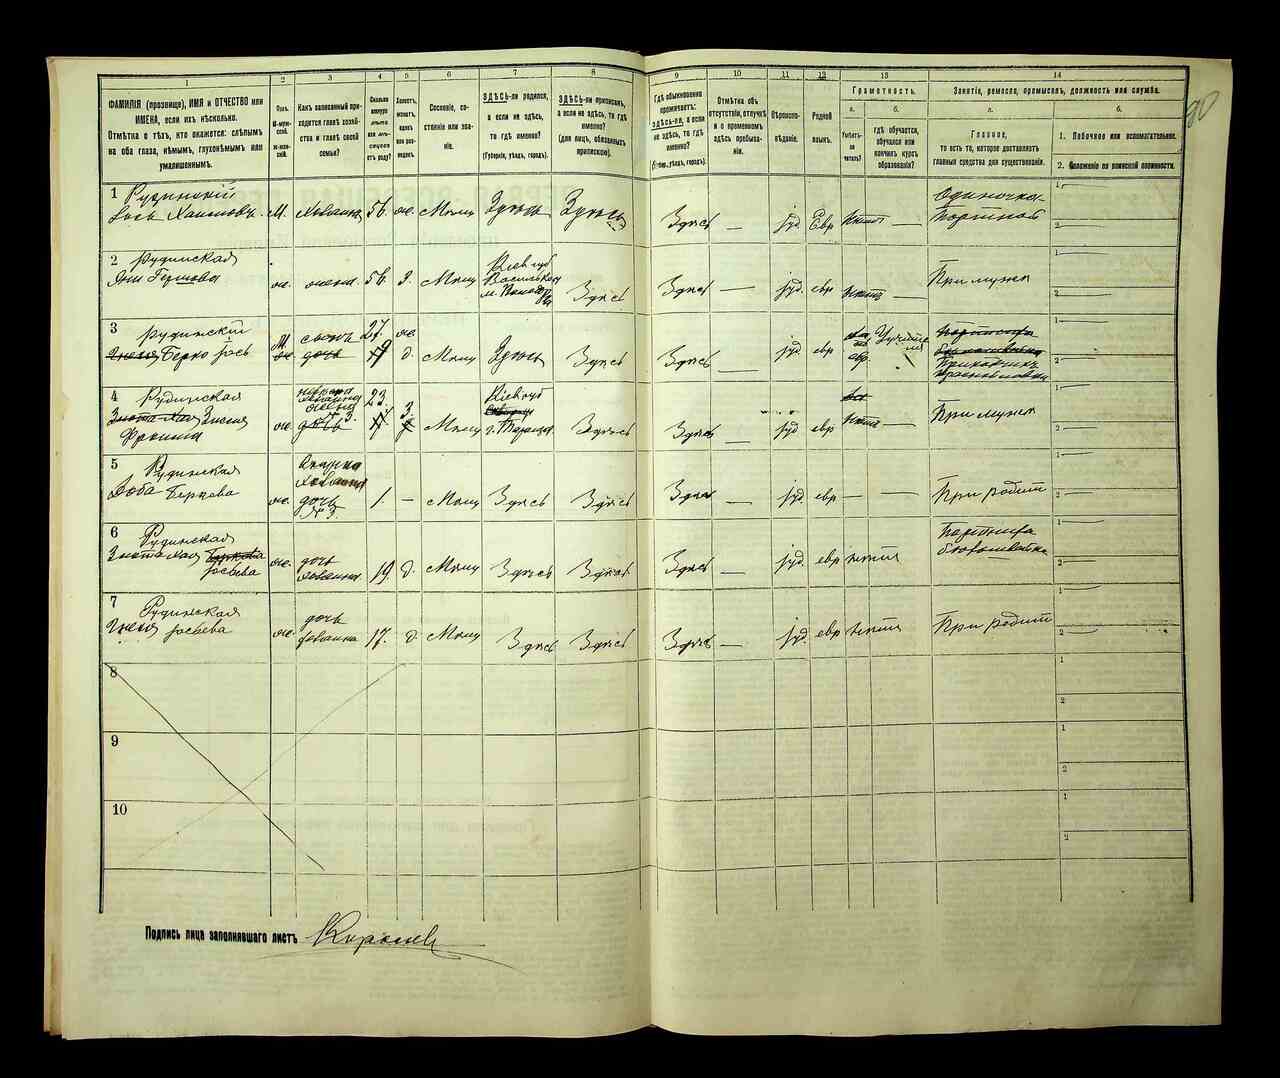 90
1 2 3 4 5 6 7 8 9 10 11 12 13 14
ФАМИЛІЯ (прозвище), ИМЯ и ОТЧЕСТВО или
ИМЕНА, если ихъ нѣсколько.
Отмѣтка о тѣхъ, кто окажется: слѣпымъ
на оба глаза, нѣмымъ, глухонѣмымъ или
умалишеннымъ.
Полъ.
М-муж-
ской.
Ж-жен-
скій.
Какъ записанный при-
ходится главѣ хозяй-
ства и главѣ своей
семьи?
Сколько
минуло
лѣтъ
отъ роду?
Холостъ,
женатъ,
вдовъ
или раз-
веденъ.
Сословіе, со-
стояніе или зва-
ніе.
ЗДѢСЬ-ли родился,
а если не здѣсь,
то гдѣ именно?
(Губернія, уѣздъ, городъ).
ЗДѢСЬ-ли приписанъ,
а если не здѣсь, то гдѣ
именно?
(для лицъ, обязанныхъ
припискою).
Гдѣ обыкновенно
проживаетъ:
здѣсь-ли, а если
не здѣсь, то гдѣ
именно?
(Губер., уѣздъ, городъ).
Отмѣтка объ
отсутствіи, отлучкѣ
и о временномъ
здѣсь пребыва-
ніи.
Вѣроиспо-
вѣданіе.
Родной
языкъ.
Грамотность.
а. б.
Умѣетъ-
ли
читать?
гдѣ обучается,
обучался или
кончилъ курсъ
образованія?
Занятія, ремесло, промыселъ, должность или служба.
а. б.
Главное,
то есть то, которое доставляетъ
главныя средства для существованія.
1. Побочное или вспомогательное.
2. Положеніе по воинской повинности.
1 Рудинскій
Іось Хаимовъ М. хозяинъ 56. ж. Мѣщ Здѣсь Здѣсь Здѣсь — іуд. Евр Одиночка
Портной
1
2
2 Рудинская
Гершова ж. жена 56. З. Мѣщ Кіев губ
Васильков
м. Здѣсь Здѣсь — іуд. евр — При мужѣ
1
2
3 Рудинскій
Гненя Берко Іось М ж. сынъ дочь 27. 19 ж. д. Мѣщ Здѣсь Здѣсь Здѣсь — іуд евр
Приказчикъ
1
2
4 Рудинская
Злота Хая
ж. жена 23. З. Мѣщ Кіев губ
г. Таращ. Здѣсь Здѣсь — іуд евр — При мужѣ
1
2
5 Рудинская
Беркова ж. внучка
хозяина
дочь
№ 3. 1. — Мѣщ Здѣсь Здѣсь Здѣсь — іуд евр — — При родит
1
2
6 Рудинская
Злота Хая Беркова
Іосьева ж. дочь
хозяина 19. д. Мѣщ Здѣсь Здѣсь Здѣсь — іуд. евр Портниха
бѣлошвейка
1
2
7 Рудинская
Гненя Іосьева ж. дочь
хозяина 17. д. Мѣщ Здѣсь Здѣсь Здѣсь — іуд. евр При родит
1
2
8
1
2
9
1
2
10
1
2
Подпись лица заполнявшаго листъ